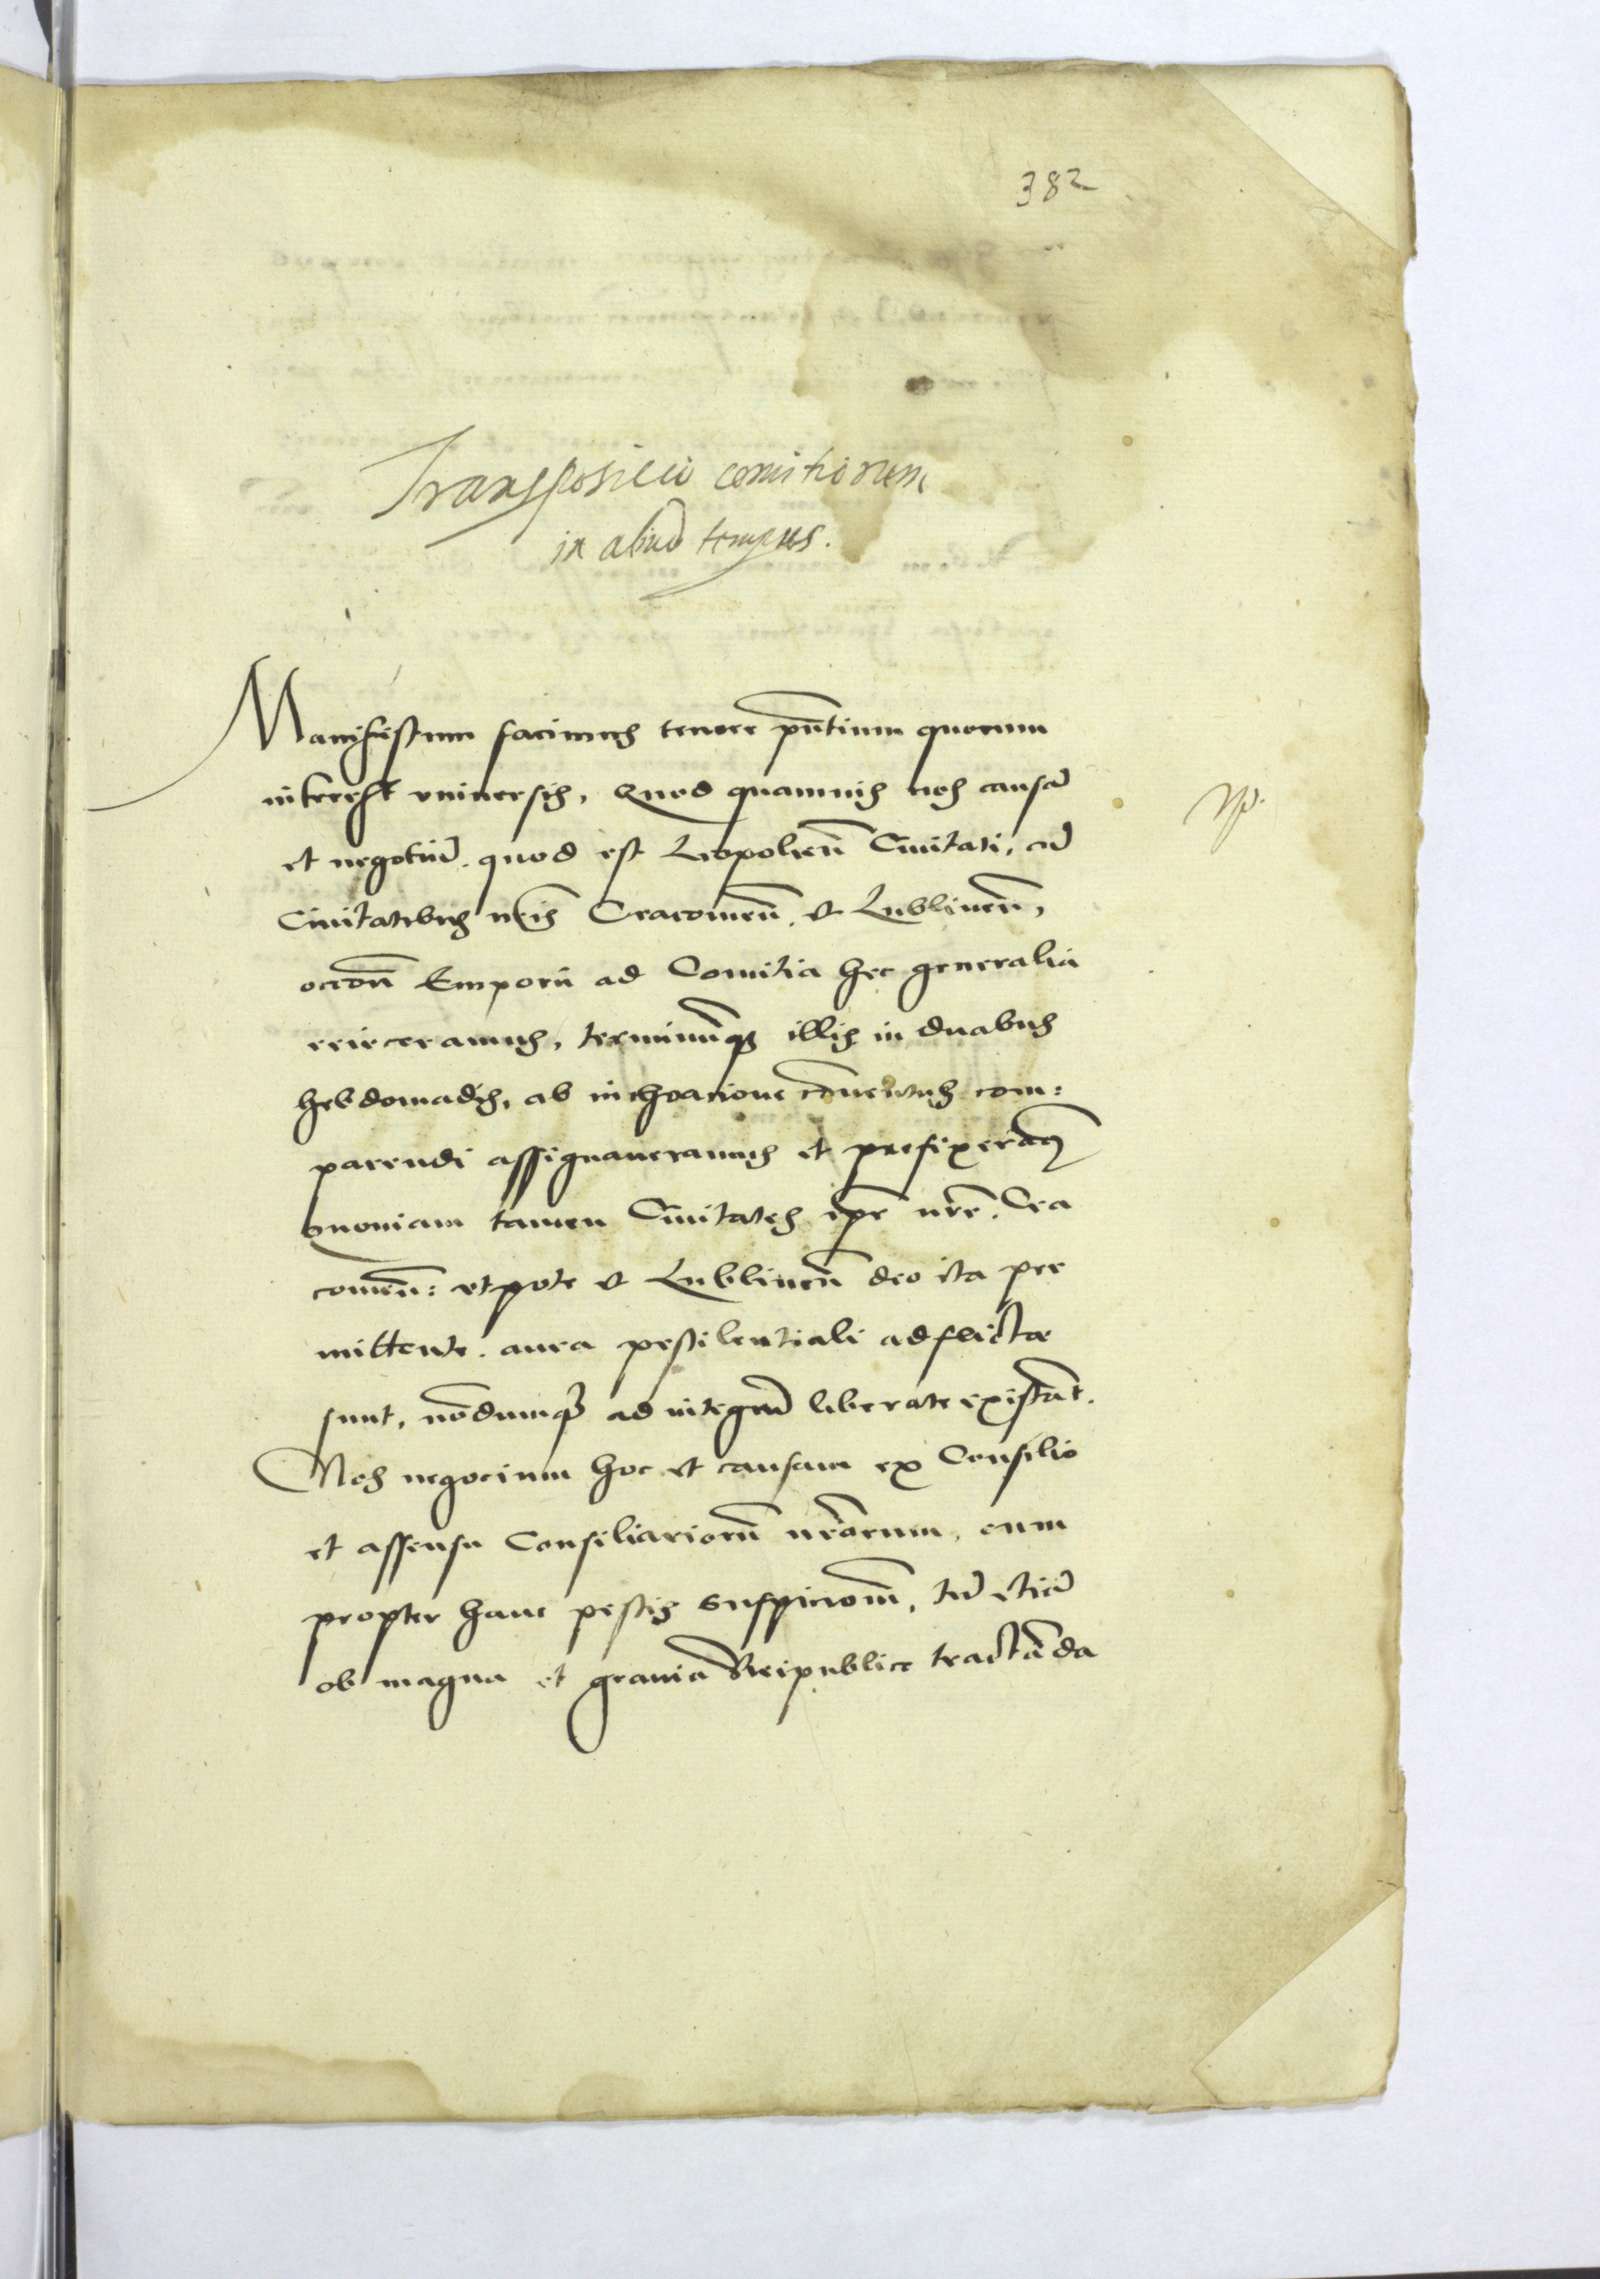 382
Transposicio comitiorum
in aliud tempus.
Manifestum facimus tenore pñtium quorum
interest vniuersis, Quod quamuis nos causã
et negotiũ. quod est Leopolieñ Ciuitati, cũ
Ciuitatibus nris Cracouieñ. et Lublineñ,
occõne Emporii ad Comitia hec generalia
reieceramus, terminũqꝫ illis in duabus
hebdomadis, ab inchoacione cõuentus com:
parendi assignaueramus et prefixeramꝰ
Quoniam tamen Ciuitates ipse nrẽ. Cra
couieñ: vtpote et Lublineñ deo ita per
mittente. aura pestilentiali adflictae
sunt, nõdumqꝫ ad integrũ liberate existãt.
Nos negocium hoc et causam ex Consilio
et assensu Consiliariorũ nrõrum, cum
propter hanc pestis suspicionẽ, tũ etiã
ob magna et grauia Reipublice tractãda